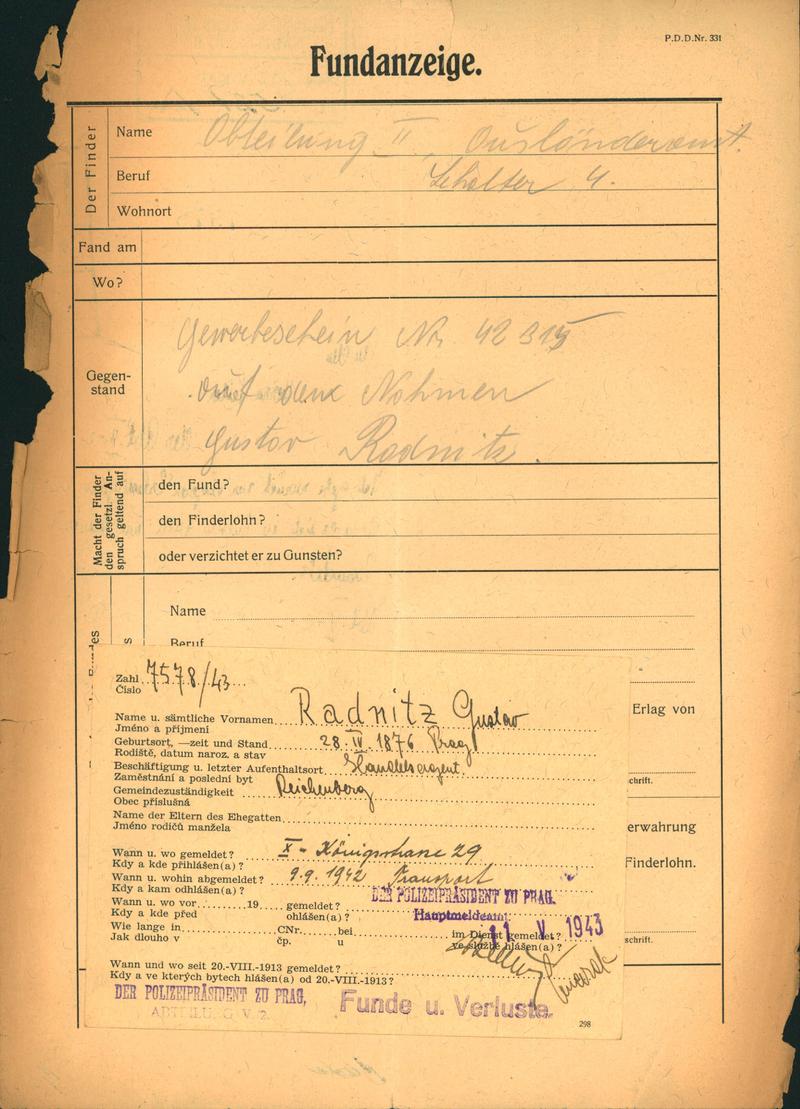 P.D.D.Nr. 331
Fundanzeige.
Der Finder
Name Abteilung II, Ausländeramt.
Beruf Schalter 4.
Wohnort
Fand am
Wo?
Gegen-
stand
Gewerbeschein Nr. 42315
auf den Nahmen
Gustav Radnitz.
Macht der Finder
den gesetzl. An-
spruch geltend auf
den Fund?
den Finderlohn?
oder verzichtet er zu Gunsten?
Name
Beruf
Erlag von
chrift.
erwahrung
Finderlohn.
schrift.
Zahl 7578/43
Číslo
Name u. sämtliche Vornamen Radnitz Gustav
Jméno a příjmení
Geburtsort, —zeit und Stand 28. IV. 1876 Prag
Rodiště, datum naroz. a stav
Beschäftigung u. letzter Aufenthaltsort Handelsagent.
Zaměstnání a poslední byt
Gemeindezuständigkeit Reichenberg
Obec příslušná
Name der Eltern des Ehegatten
Jméno rodičů manžela
Wann u. wo gemeldet? X - Königstrasse 29
Kdy a kde přihlášen(a)?
Wann u. wohin abgemeldet? 9.9. 1942 Transport
Kdy a kam odhlášen(a)?
DER POLIZEIPRÄSIDENT ZU PRAG.
Wann u. wo vor 19 gemeldet?
Kdy a kde před ohlášen(a)?
Hauptmeldeamt
11 V 1943
Wie lange in CNr. bei im Dienst gemeldet?
Jak dlouho v čp. u ve službě hlášen(a)?
Wann und wo seit 20.-VIII.-1913 gemeldet?
Kdy a ve kterých bytech hlášen(a) od 20.-VIII.-1913?
DER POLIZEIPRÄSIDENT ZU PRAG,
ABTEILUNG V/2
Funde u. Verluste
298